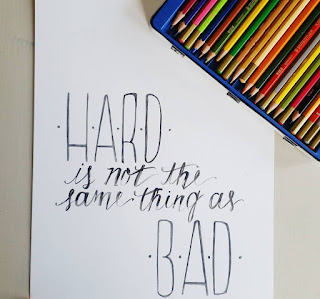 ·H·A·R·D·
is not the
same thing as
·B·A·D·